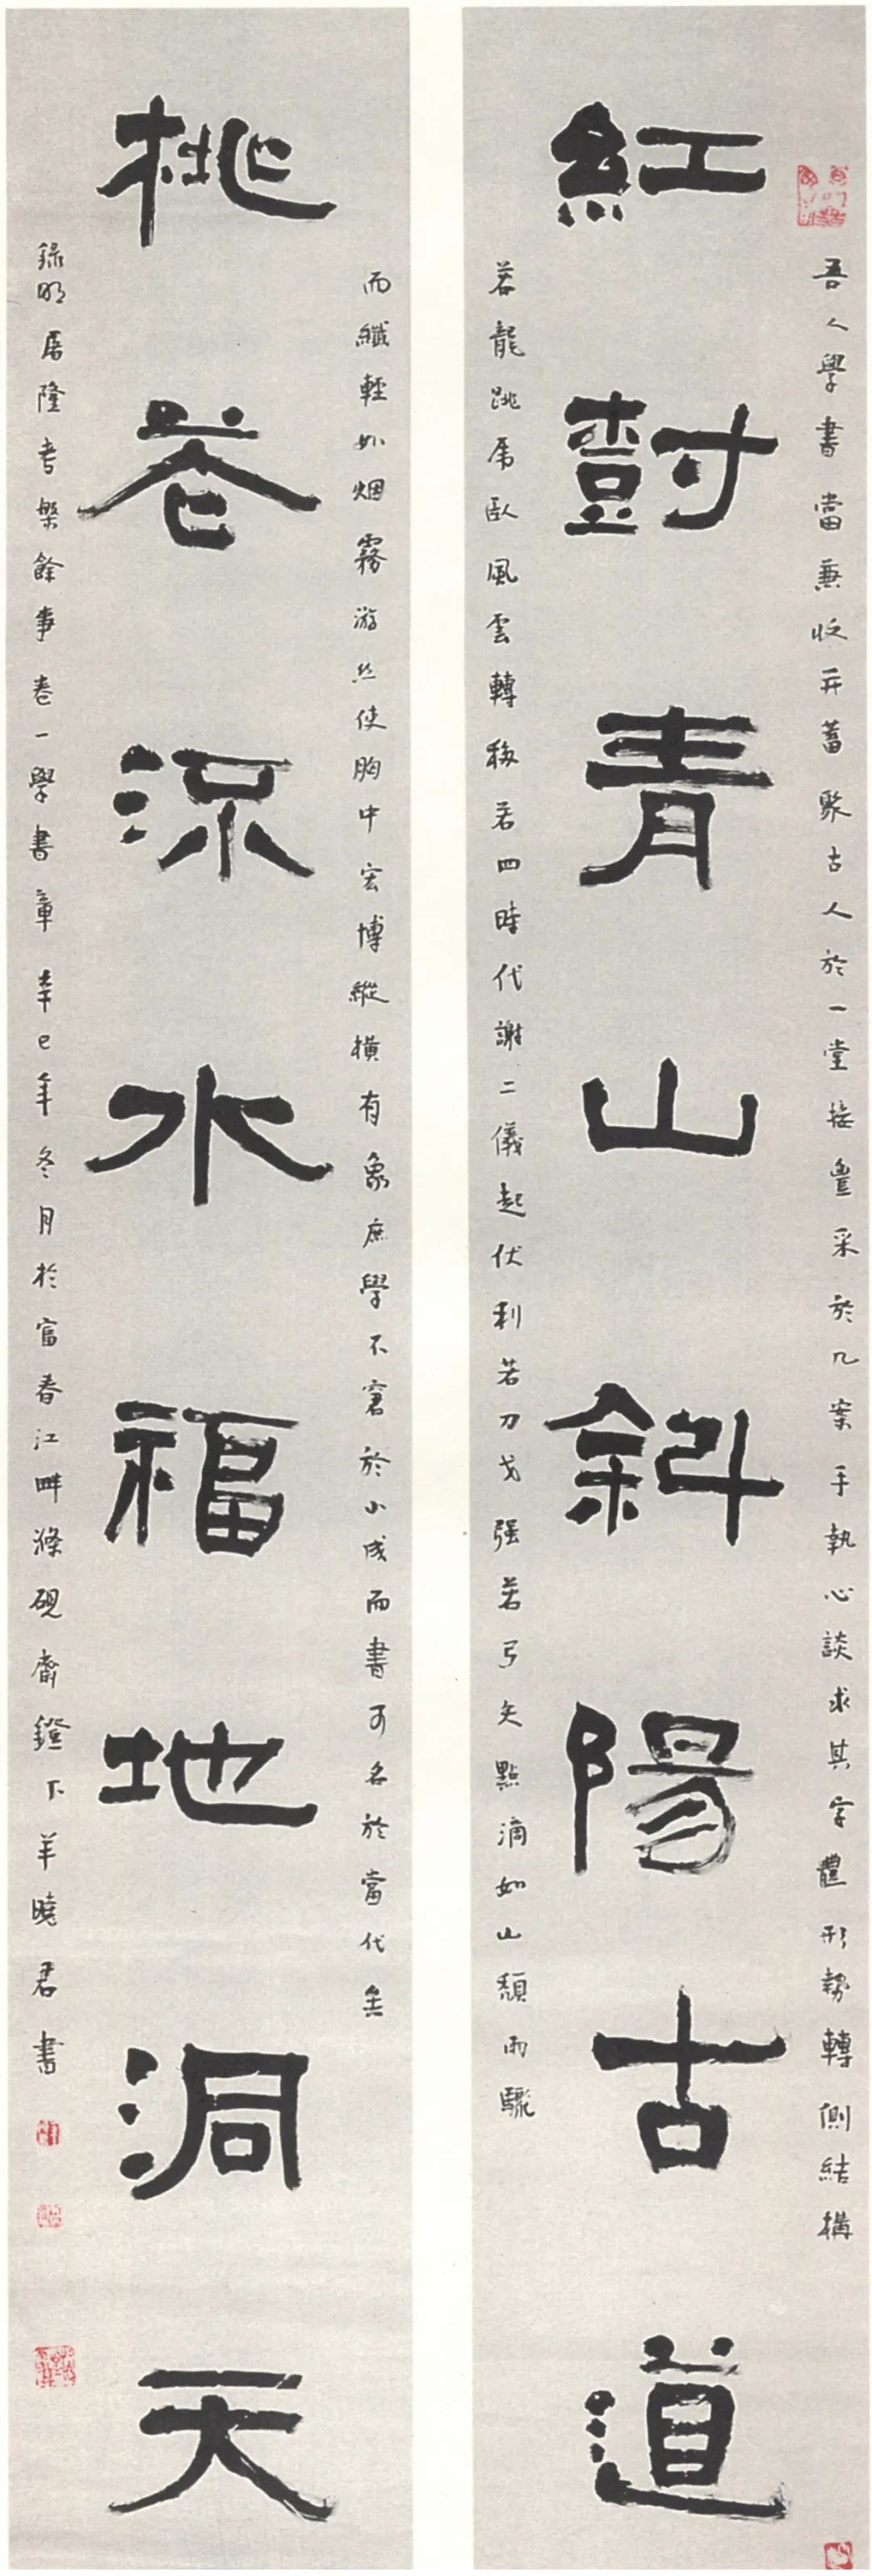 紅尌青山斜陽古道
桃花流水福地洞天
吾人學書當兼收并蓄聚古人於一堂接豐采於几案手執心談求其字體形勢轉側結構
若龍跳虎臥風雲轉移若四時代謝二儀起伏利若刀戈强若弓矢點滴如山頹雨驟
而纖輕如烟霧游絲使胸中宏博縱橫有象庶學不窘於小成而書可名於當代矣
錄明屠隆考槃餘事卷一學書章辛巳年冬月於富春江畔滌硯齋鐙下羊曉君書